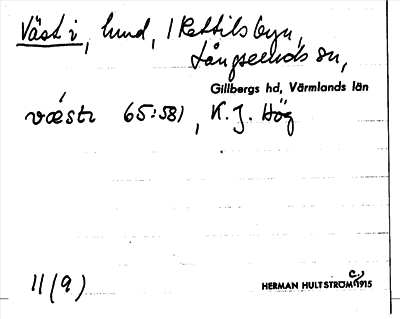 Väst i, hund, 1 Kettilsbyn,
Långseruds sn,
Gillbergs hd, Värmlands län
vǽstɩ 65:581, K.J. Hög
11(9)
HERMAN HULTSTRÖM c:a 1915